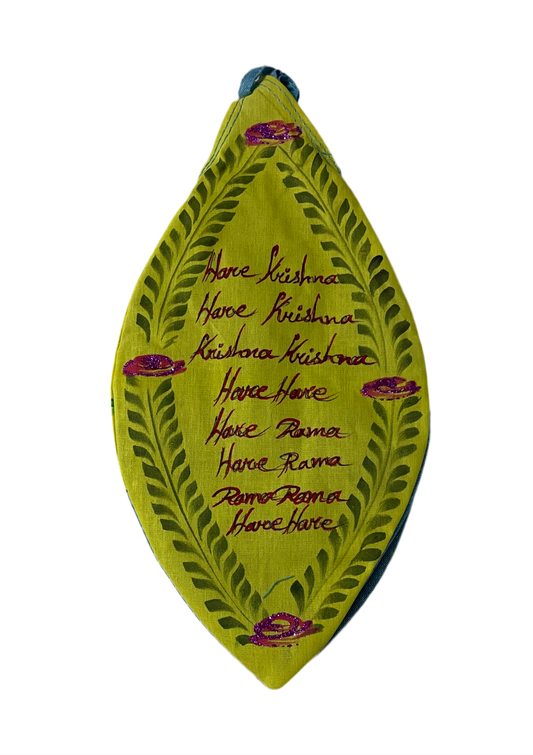 Hare Krishna
Hare Krishna
Krishna Krishna
Hare Hare
Hare Rama
Hare Rama
Rama Rama
Hare Hare